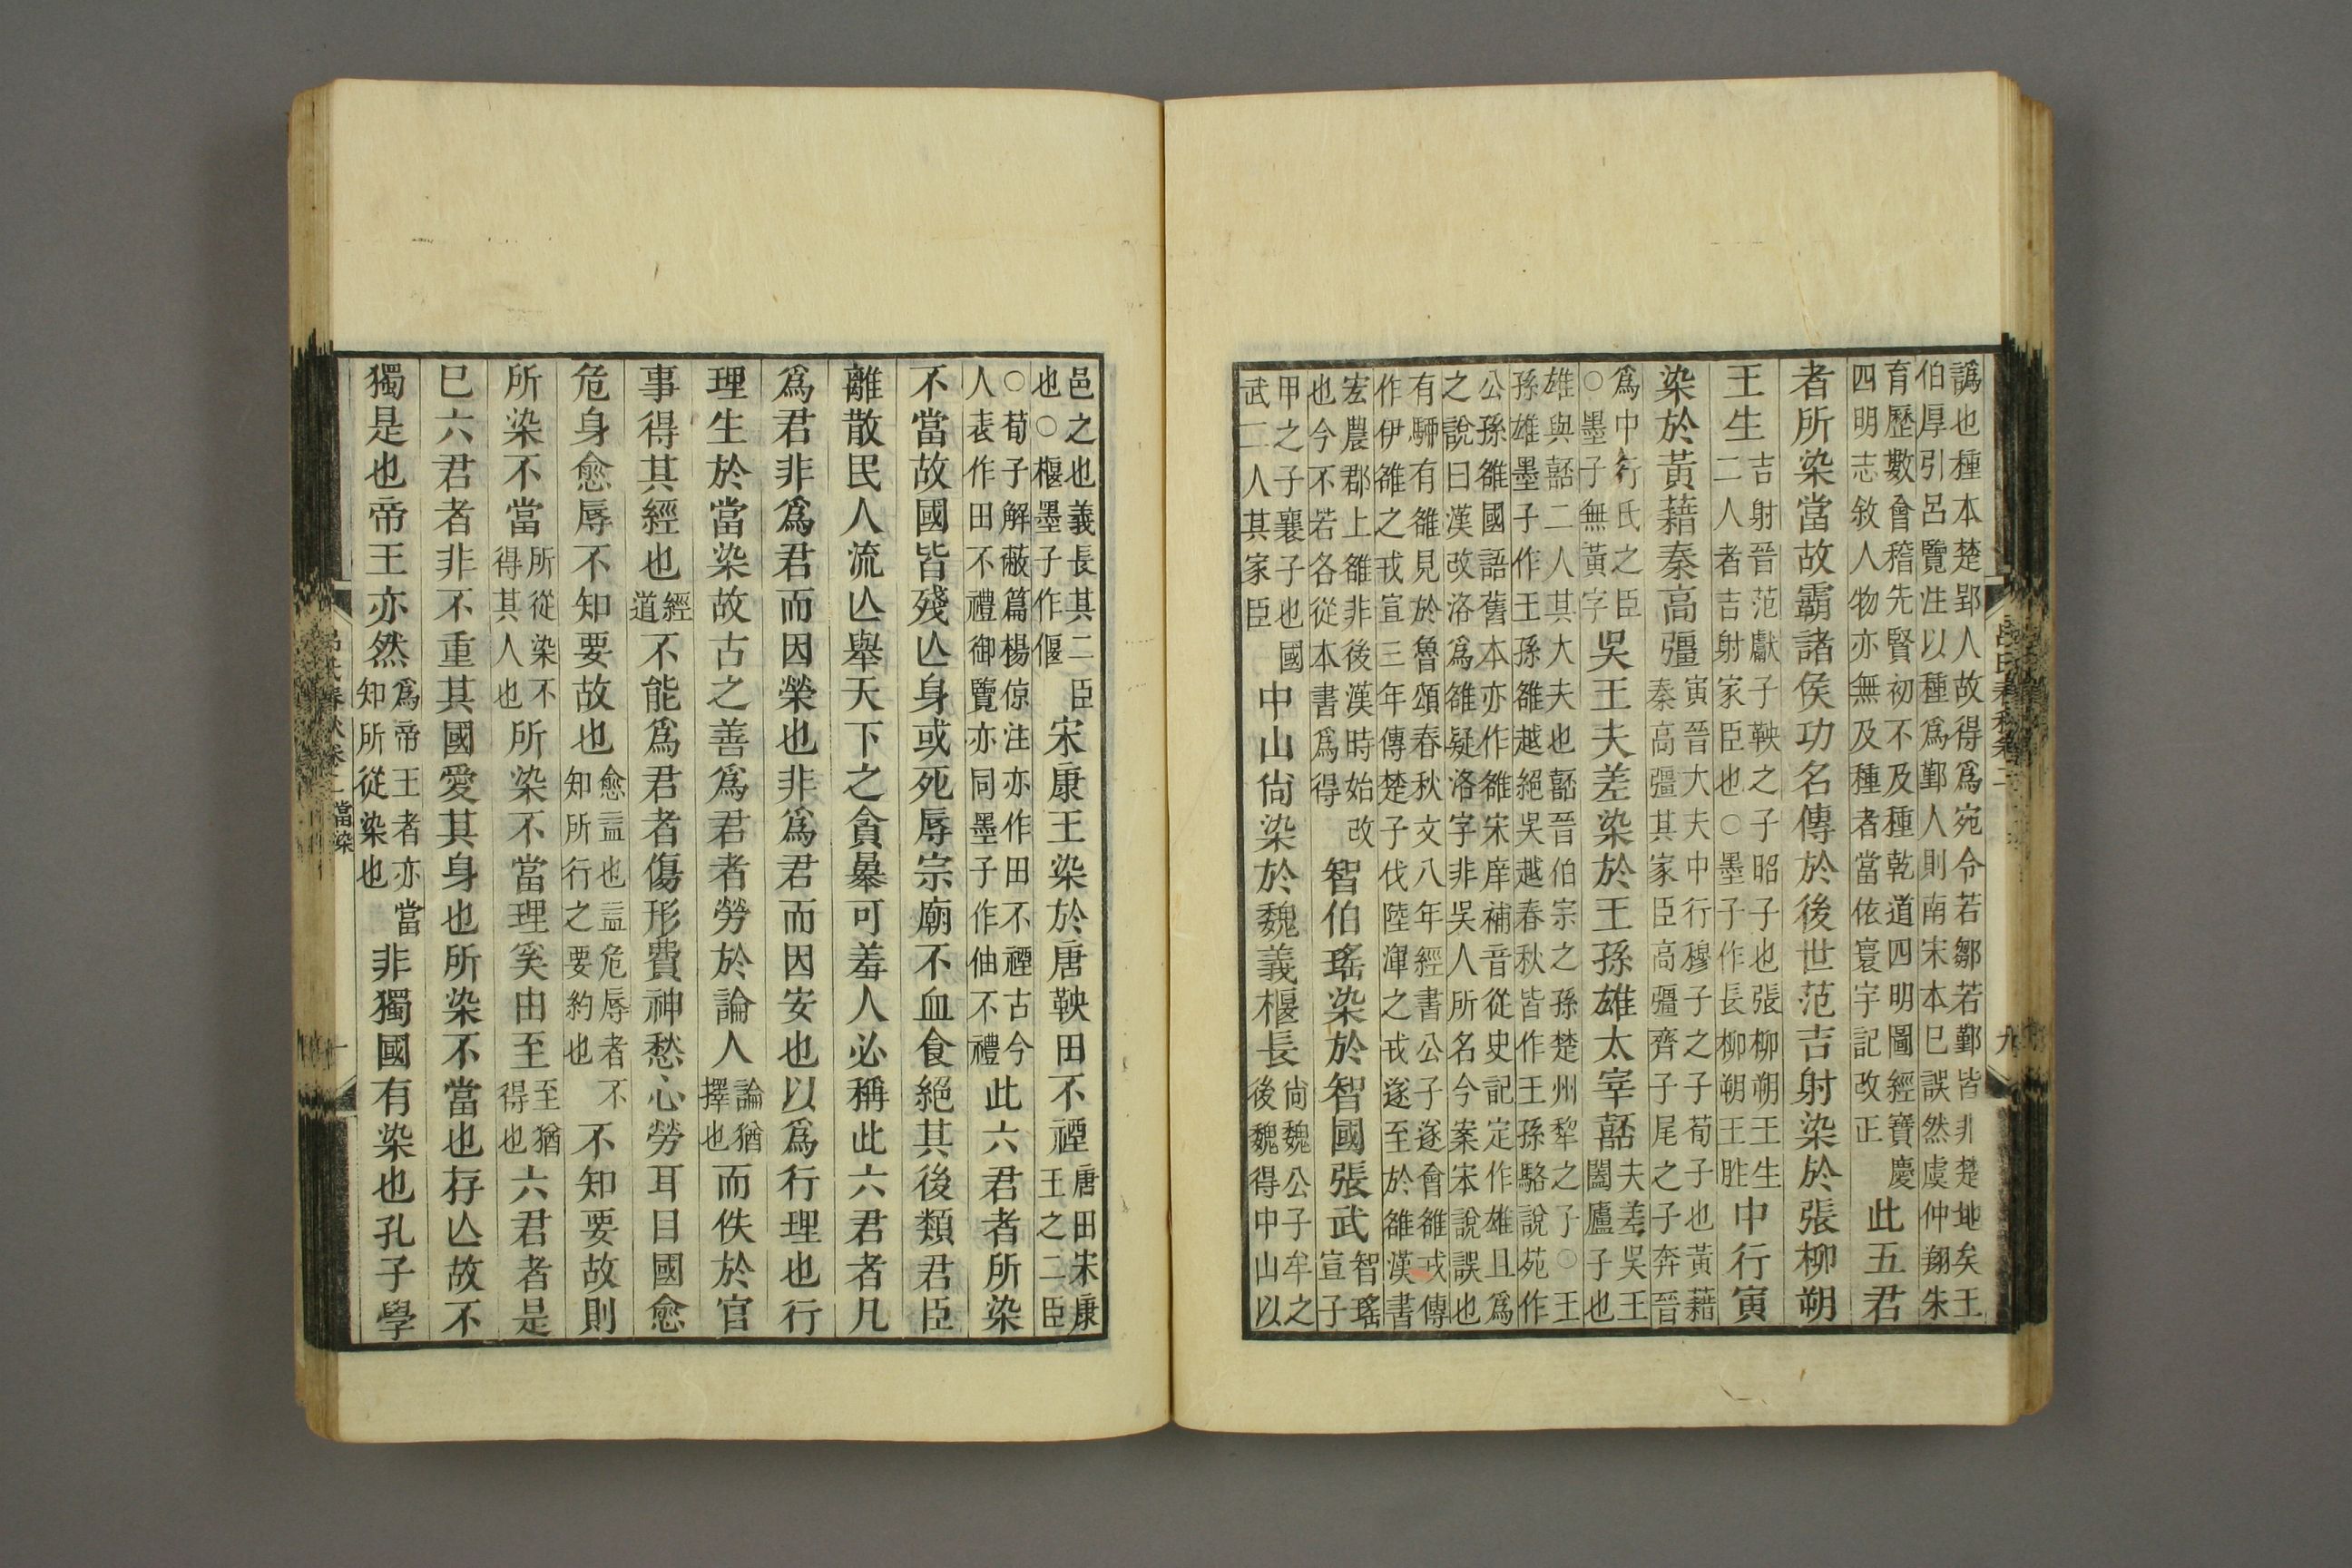 譌也種本楚郢人故得爲宛令若鄒若鄞皆非楚地矣王
伯厚引呂覽注以種爲鄞人則南宋本已誤然虞仲翔朱
育歷數會稽先賢初不及種乾道四明圖經寶慶
四明志敘人物亦無及種者當依寰宇記改正
此五君
者所染當故霸諸侯功名傳於後世范吉射染於張柳朔
王生
吉射晉范獻子鞅之子昭子也張柳朔王生
二人者吉射家臣也○墨子作長柳朔王胜
中行寅
染於黃藉秦高彊
寅晉大夫中行穆子之子荀子也黃藉
秦高彊其家臣高彊齊子尾之子奔晉
爲中行氏之臣
○墨子無黃字
吳王夫差染於王孫雄太宰嚭
夫差吳王
闔廬子也
雄與嚭二人其大夫也嚭晉伯宗之孫楚州犂之子○王
孫雄墨子作王孫雒越絕吳越春秋皆作王孫駱說苑作
公孫雒國語舊本亦作雒宋庠補音從史記定作雄且爲
之說曰漢改洛爲雒疑洛字非吳人所名今案宋說誤也
有駵有雒見於魯頌春秋文八年經書公子遂會雒戎傳
作伊雒之戎宣三年傳楚子伐陸渾之戎遂至於雒漢書
宏農郡上雒非後漢時始改
也今不若各從本書爲得
智伯瑤染於智國張武
智瑤
宣子
甲之子襄子也國
武二人其家臣
中山尙染於魏義椻長
尙魏公子牟之
後魏得中山以
呂氏春秋卷二
九
邑之也義長其二臣
也○椻墨子作偃
宋康王染於唐鞅田不禋
唐田宋康
王之二臣
○荀子解蔽篇楊倞注亦作田不禋古今
人表作田不禮御覽亦同墨子作伷不禮
此六君者所染
不當故國皆殘亾身或死辱宗廟不血食絕其後類君臣
離散民人流亾舉天下之貪暴可羞人必稱此六君者凡
爲君非爲君而因榮也非爲君而因安也以爲行理也行
理生於當染故古之善爲君者勞於論人
論猶
擇也
而佚於官
事得其經也
經
道
不能爲君者傷形費神愁心勞耳目國愈
危身愈辱不知要故也
愈益也益危辱者不
知所行之要約也
不知要故則
所染不當
所從染不
得其人也
所染不當理奚由至
至猶
得也
六君者是
已六君者非不重其國愛其身也所染不當也存亾故不
獨是也帝王亦然
爲帝王者亦當
知所從染也
非獨國有染也孔子學
呂氏春秋卷二
當染